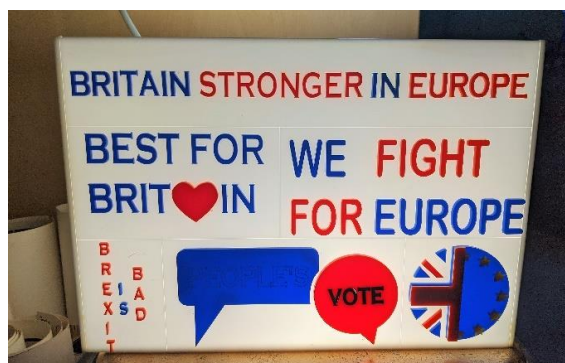 BRITAIN STRONGER IN EUROPE
BEST FOR
BRIT❤IN
WE FIGHT
FOR EUROPE
BREXIT
IS
BAD
VOTE